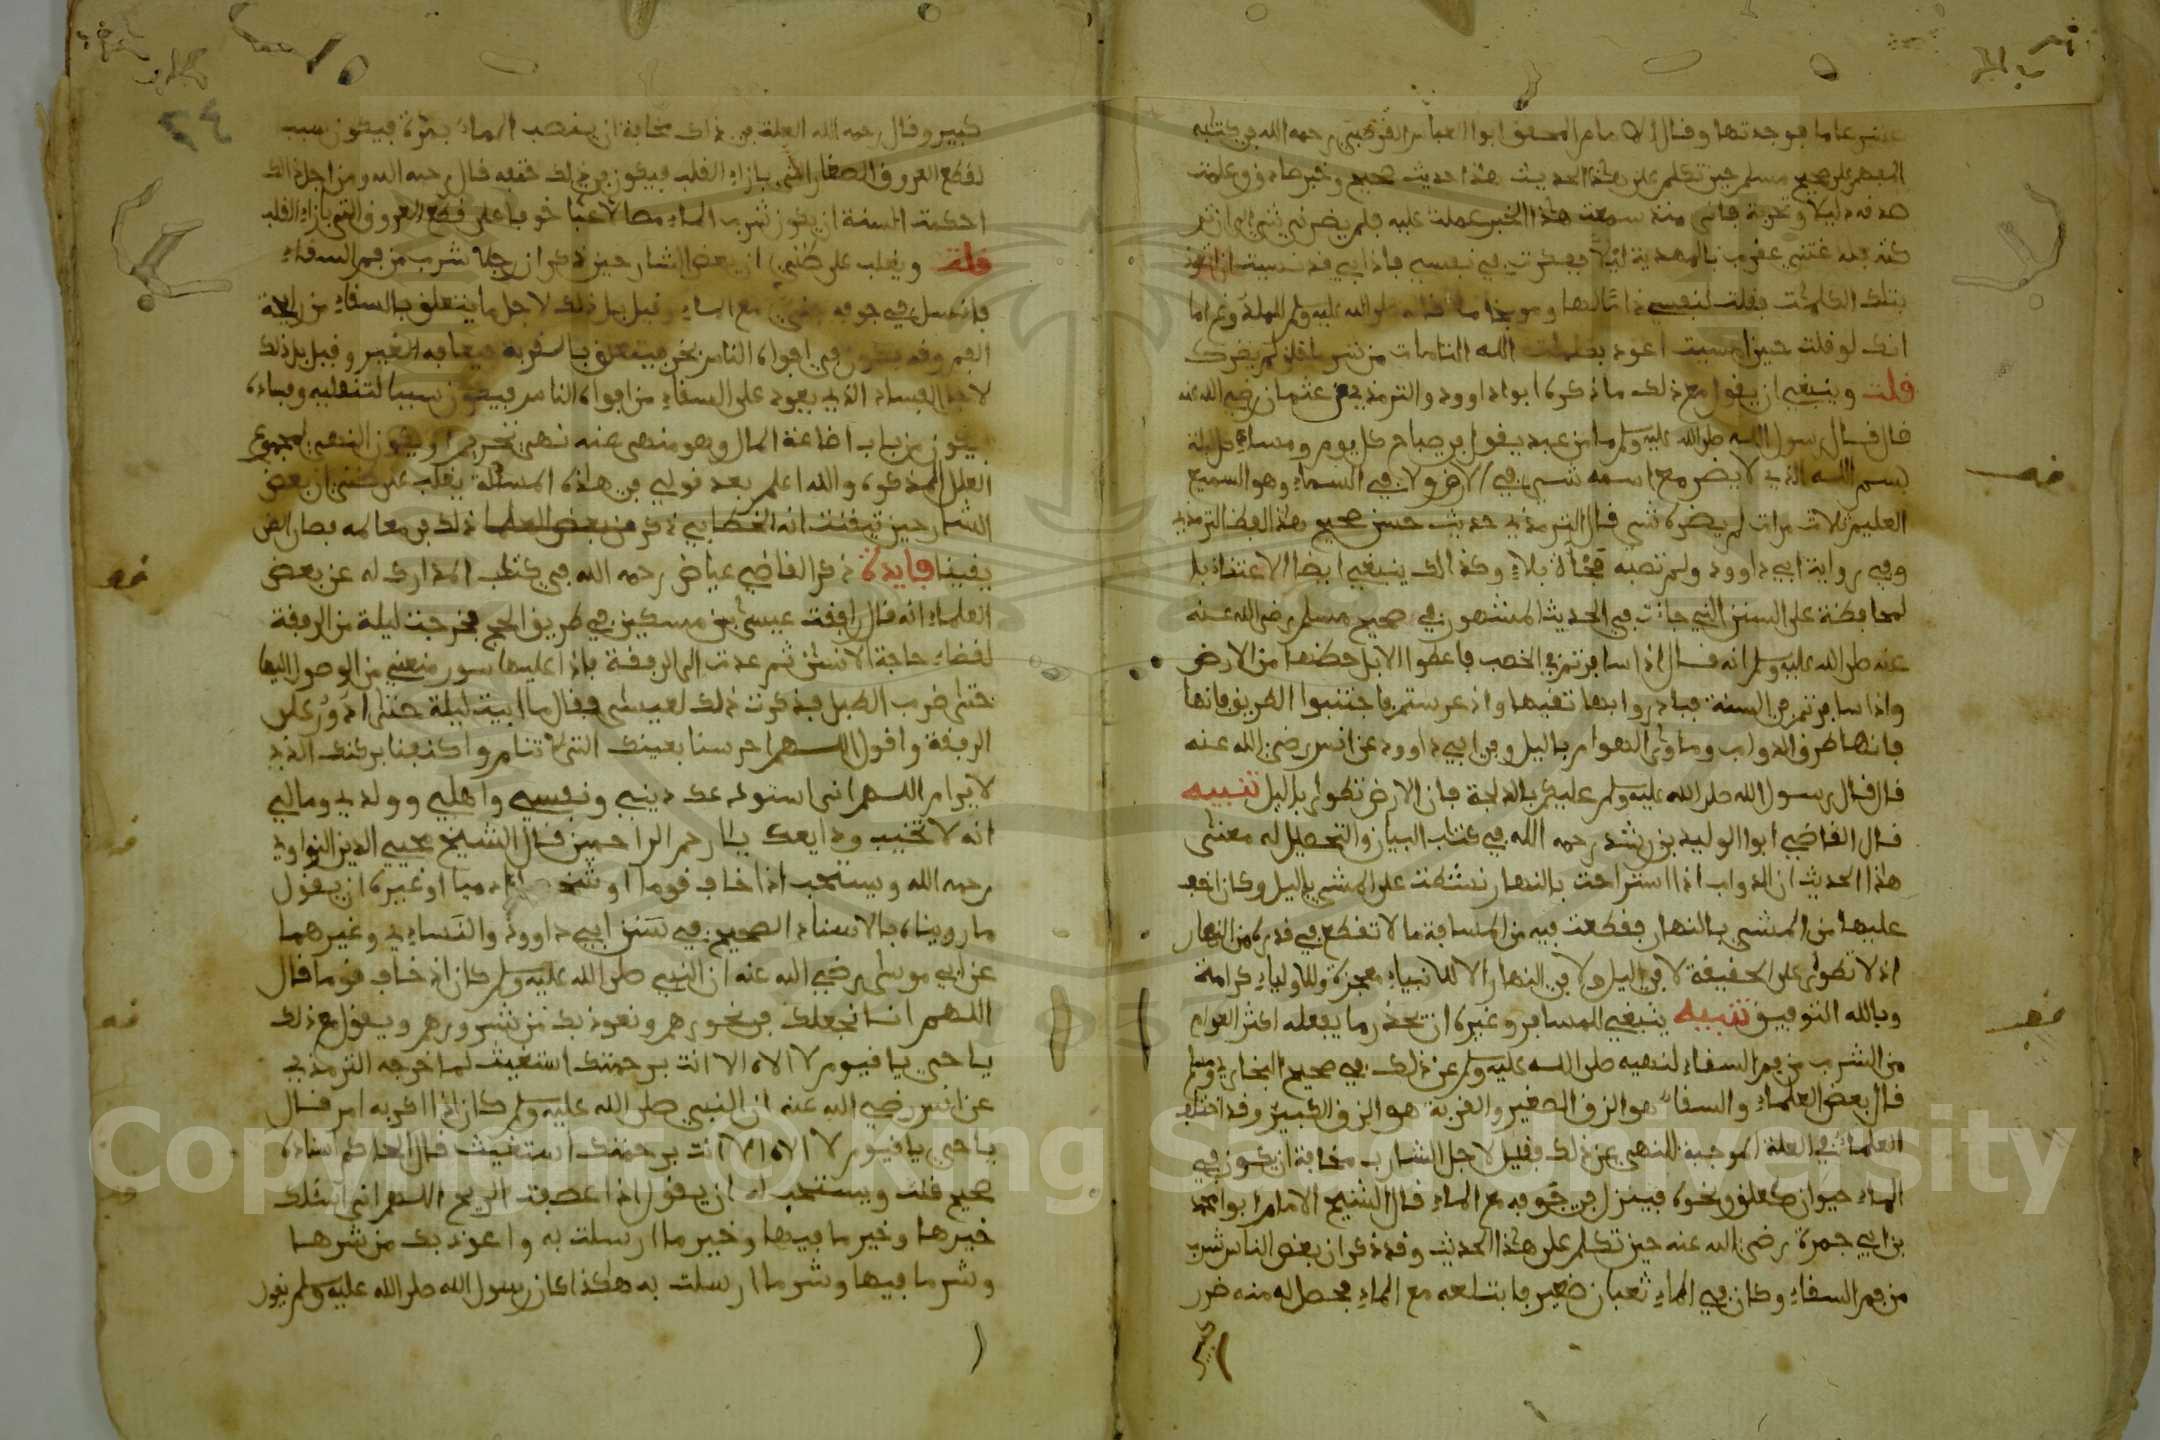 عشر عاما فوجدتها وقال الامام المحقق ابوا العباس القرطبي رحمه الله في كتابه
المفهم على صحيح مسلم حين تكلم على هذا الحديث هذا حديث صحيح وخبر صادق علمت
صدقه دليلا وتجربة فاني منذ سمعت هذا الخبر عملت عليه فلم يضرني شيء الى ان تر
كته فلدغتني عقرب بالمهدية ليلا ففكرت في نفسي فاذا بي قد نسيت ان اتعوذ
بتلك الكلمات فقلت لنفسي ذاما لها وموبخا ما قاله صلى الله عليه وسلم للملدوغ اما
انك لو قلت حين امسيت اعوذ بكلمات الله التامات من شر ما خلق لم يضرك
قلت وينبغي ان يقول مع ذلك ما ذكره ابوا داوود والترمذي عن عثمان رضي الله عنه
قال قال رسول الله صلى الله عليه وسلم ما من عبد يقول في صباح كل يوم ومساء كل ليلة
بسم الله الذي لا يضر مع اسمه شيء في الارض ولا في السماء وهو السميع
العليم ثلاث مرات لم يضره شي قال الترمذي حديث حسن صحيح هذا لفظ الترمذي
وفي رواية ابي داوود ولم تصبه فجأة بلاء وكذالك ينبغي ايضا الاعتناء با
لمحافظة على السنن التي جاءت في الحديث المشهور في صحيح مسلم رضي الله عنه
عنه صلى الله عليه وسلم انه قال اذا سافرتم في الخصب فاعطوا الابل حظها من الارض
واذا سافرتم في السنة فبادروا بها نقيها واذ عرستم فاجتنبوا الطريق فانها
فانها طرق الدواب وماوى الهوام باليل وفي ابي داوود عن انس رضي الله عنه
قال قال رسول الله صلى الله عليه وسلم عليكم بالدلجة فان الارض تطوى باليل تنبيه
قال القاضي ابوا الوليد بن رشد رحمه الله في كتاب البيان والتحصيل له معنى
هذا الحديث ان الدواب اذا استراحت بالنهار نشطت على المشي باليل وكان اخف
عليها من المشي بالنهار فقطعت فيه من المسافة ما لا تقطع في قدره من النهار
اذ لا تطوى على الحقيقة لا في اليل ولا في النهار الا للانبياء معجزة وللاولياء كرامة
وبالله التوفيق تنبيه ينبغي للمسافر وغيره ان يحذر ما يفعله اكثر العوام
من الشرب من فم السقاء لنهيه صلى الله عليه وسلم عن ذلك في صحيح البخاري ومسلم
قال بعض العلماء والسقاء هو الزق الصغير والقربة هو الزق الكبير وقد اختلف
العلماء في العلة الموجبة للنهي عن ذلك فقيل لاجل الشارب مخافة ان يكون في
الماء حيوان كعلق ونحوه فينزل في جوفه مع الماء قال الشيخ الامام ابوا محمد
بن ابي جمرة رضي الله عنه حين تكلم على هذا الحديث وقد ذكر ان بعض الناس شرب
من فم السقاء وكان في الماء ثعبان صغير فابتلعه مع الماء فحصل له منه ضرر
كبير وقال رحمه الله العلة في ذلك مخافة ان ينصب الماء بقوة فيكون سبب
لقطع العروق الصغار التي بازاء القلب فيكون في ذلك حتفه قال رحمه الله ومن اجل ذالك
احكمت السنة ان يكون شرب الماء مصا لا عبا خوفا على قطع العروق التي بازاء القلب
قلت ويغلب على ظني ان بعض الشارحين ذكر ان رجلا شرب من فم السقاء
فانسل في جوفه مع الماء وقيل بل ذلك لاجل ما يتعلق بالسقاء من رايحة
الفم وقد يكون في افواه الناس بخر فيتعلق بالقربة فيعافه الغير وقيل بل ذلك
لاجل الفساد الذي يعود على السقاء من افواه الناس فيكون سببا لتنقليه وفساده
فيكون من باب اضاعة المال وهو منهى عنه نهي تحريم او يكون النهي لمجموع
العلل المذكورة والله اعلم بعد قولي في هذه المسئلة يغلب على ظني ان بعض
الشارحين تيقنت انه الخطابي ذكر عن بعض العلما ذلك في معالمه فصار الظن
يقينا فايدة ذكر القاضي عياض رحمه الله في كتاب المدارك له عن بعض
العلماء انه قال رافقت عيسى بن مسكين في طريق الحج فخرجت ليلة من الرفقة
لقضاء حاجة الانسان ثم عدت الى الرفقة فاذا عليها سور منعني من الوصول اليها
حتى ضرب الطبل فذكرت ذلك لعيسى فقال ما ابيت ليلة حتى ادور على
الرفقة واقول اللهم احرسنا بعينك التي لا تنام واكنفنا بركنك الذي
لا يرام اللهم اني استودعك ديني ونفسي واهلي وولدي ومالي
انه لا تخيب ودايعك يا ارحم الراحمين قال الشيخ محيي الدين النواوي
رحمه الله ويستحب اذا خاف قوما او شخصا ادميا او غيره ان يقول
ما رويناه بالاسناد الصحيح في سنن ابي داوود والنساءي وغيرهما
عن ابي موسى رضي الله عنه ان النبي صلى الله عليه وسلم كان اذ خاف قوما قال
اللهم انا نجعلك في نحورهم ونعوذ بك من شرورهم ويقول مع ذلك
يا حي يا قيوم لا الاه الا انت برحمتك استغيث لما خرجه الترمذي
عن انس رضي الله عنه ان النبي صلى الله عليه وسلم كان اذا اكربه امر قال
يا حي يا قيوم لا الاه الا انت برحمتك استغيث قال الحاكم اسناده
صحيح قلت ويستحب له ان يقول اذا عصفت الريح اللهم اني اسئلك
خيرها وخير ما فيها وخير ما ارسلت به واعوذ بك من شرها
وشر ما فيها وشر ما ارسلت به هكذا كان رسول الله صلى الله عليه وسلم يقول
Copyright © King Saud University